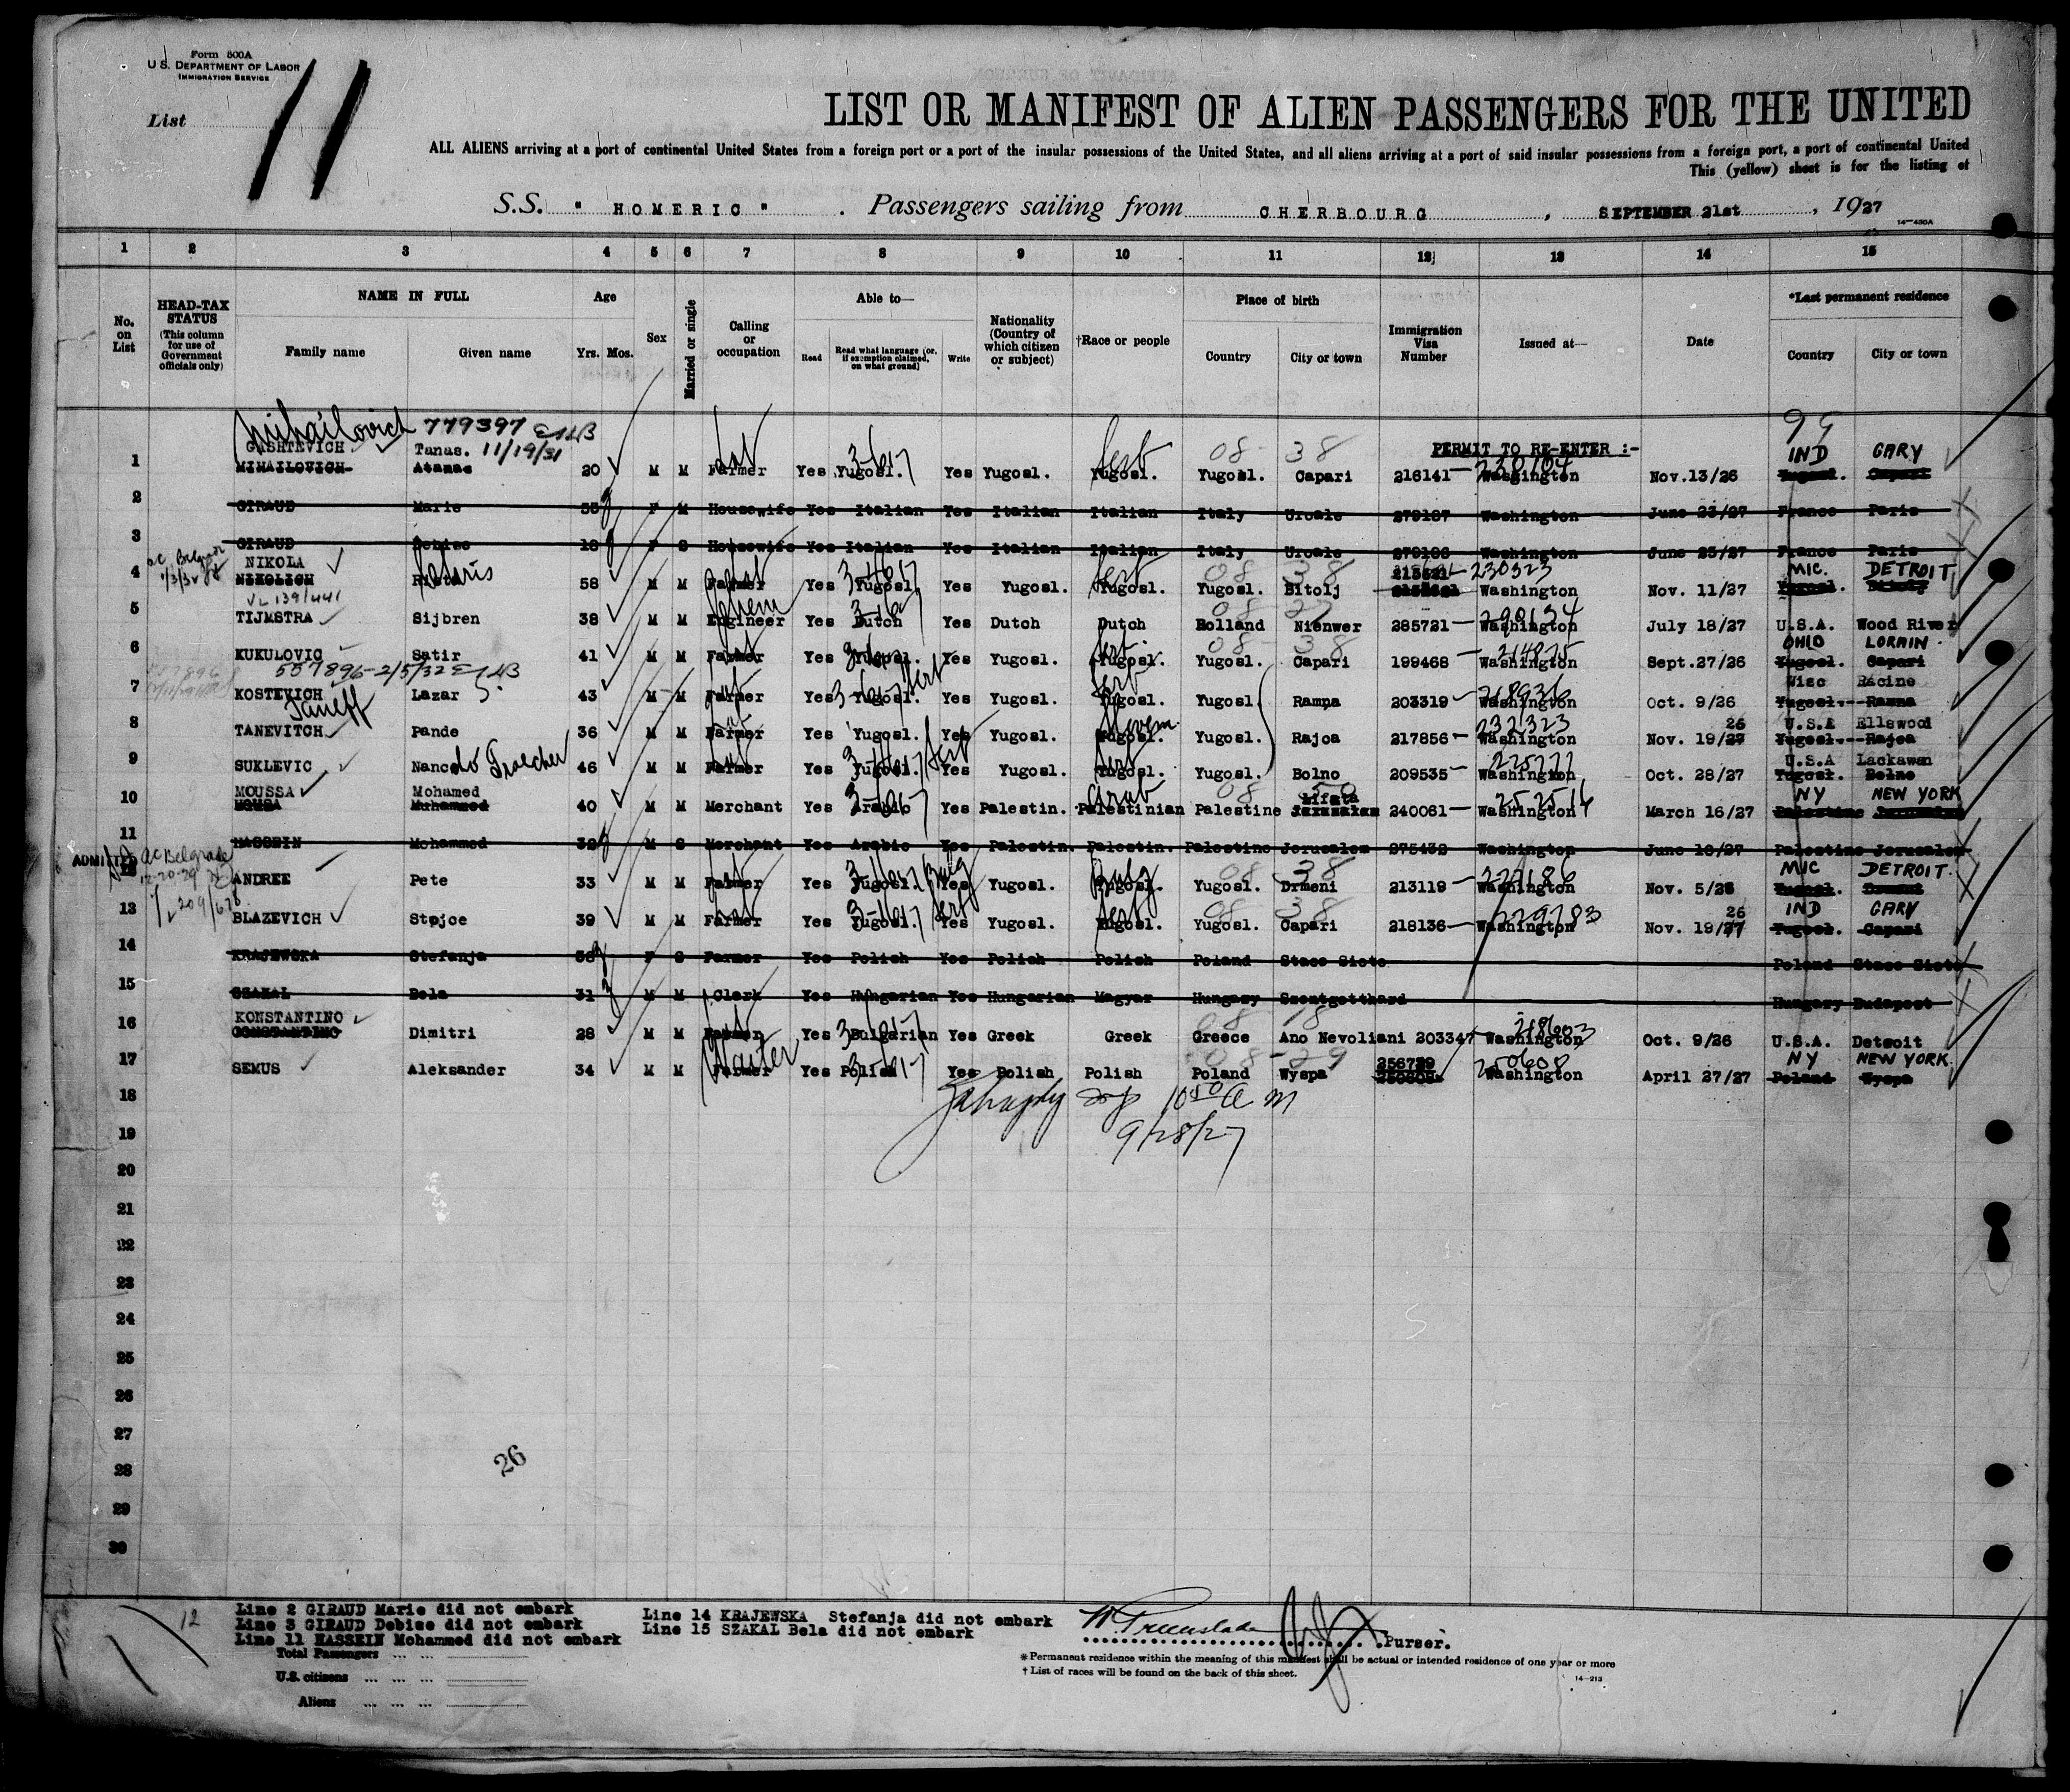 Form 500A
U.S. DEPARTMENT OF LABOR
IMMIGRATION SERVICE
List 11
LIST OR MANIFEST OF ALIEN PASSENGERS FOR THE UNITED
ALL ALIENS arriving at a port of continental United States from a foreign port or a port of the insular possessions of the United States, and all aliens arriving at a port of said insular possessions from a foreign port, a port of continental United
This (yellow) sheet is for the listing of
S.S. "HOMERIC". Passengers sailing from CHERBOURG, SEPTEMBER 21st, 1927
14-430A
1 2 3 4 5 6 7 8 9 10 11 12 13 14 15
No. on List
HEAD-TAX STATUS (This column for use of Government officials only)
NAME IN FULL
Family name Given name
Age
Yrs. Mos.
Sex
Married or single
Calling or occupation
Able to—
Read Read what language (or, if exemption claimed, on what ground) Write
Nationality (Country of which citizen or subject)
†Race or people
Place of birth
Country City or town
Immigration Visa Number
Issued at—
Date
*Last permanent residence
Country City or town
Mihailovich 779397 99
GASHTEVICH Tanas. 11/19/31 08 38 PERMIT TO RE-ENTER :- IND GARY
1 MIHAILOVICH Atanas 20 M M Farmer Yes Yugosl. Yes Yugosl. Yugosl. Yugosl. Capari 216141 Washington Nov.13/26 Yugosl. Capari
2 GIRAUD Marie F M Housewife Yes Italian Yes Italian Italian Italy Urcale 279187 Washington June 23/27 France Paris
3 GIRAUD Debise 18 F S Housewife Yes Italian Yes Italian Italian Italy Urcale 279186 Washington June 23/27 France Paris
NIKOLA 08 38 230323 MIC. DETROIT
4 NIKOLICH 58 M M Farmer Yes Yugosl. Yes Yugosl. Yugosl. Yugosl. Bitolj Washington Nov. 11/27 Yugosl. Bitolj
5 TIJMSTRA Sijbren 38 M M Engineer Yes Dutch Yes Dutch Dutch Holland Nienwer 285721 290134 Washington July 18/27 U.S.A. Wood River
08 38 OHIO LORAIN
6 KUKULOVIC Satir 41 M M Farmer Yes Yugosl. Yes Yugosl. Yugosl. Yugosl. Capari 199468 214875 Washington Sept.27/26 Yugosl. Capari
557896-2/5/32 Wisc Racine
7 KOSTEVICH Lazar 43 M M Farmer Yes Yugosl. Yes Yugosl. Yugosl. Yugosl. Ramna 203319 Washington Oct. 9/26 Yugosl. Ramna
Taneff 232323 26 U.S.A Ellswood
8 TANEVITCH Pande 36 M M Farmer Yes Yugosl. Yes Yugosl. Yugosl. Yugosl. Rajca 217856 Washington Nov. 19/27 Yugosl. Rajca
U.S.A Lackawan
9 SUKLEVIC Nance 46 M M Farmer Yes Yugosl. Yes Yugosl. Yugosl. Yugosl. Bolno 209535 225777 Washington Oct. 28/27 Yugosl. Bolno
MOUSSA Mohamed Arab Lifata NY NEW YORK
10 MOUSA Muhammed 40 M M Merchant Yes Arabic Yes Palestin. Palestinian Palestine Jerusalem 240061 252516 Washington March 16/27 Palestine Jerusalem
11 HASSEIN Mohammed M S Merchant Yes Arabic Yes Palestin. Palestin. Palestine Jerusalem 275432 Washington June 10/27 Palestine Jerusalem
ADMITTED ac Belgrade 08 38 227186 MIC DETROIT.
12 ANDREE Pete 33 M M Farmer Yes Yugosl. Yes Yugosl. Yugosl. Yugosl. Drmeni 213119 Washington Nov. 5/26 Yugosl. Drmeni
08 38 26 IND GARY
13 BLAZEVICH Stojce 39 M M Farmer Yes Yugosl. Yes Yugosl. Yugosl. Yugosl. Capari 218136 229783 Washington Nov. 19/27 Yugosl. Capari
14 KRAJEWSKA Stefanja F S Farmer Yes Polish Yes Polish Polish Poland Stace Sioto Poland Stace Sioto
15 SZAKAL Bela 31 M M Clerk Yes Hungarian Yes Hungarian Magyar Hungary Szentgotthard Hungary Budapest
KONSTANTINO
16 CONSTANTINO Dimitri 28 M M Farmer Yes Bulgarian Yes Greek Greek Greece Ano Nevoliani 203347 218603 Washington Oct. 9/26 U.S.A. Detroit
Waiter 08 29 256729 NY NEW YORK.
17 SEMUS Aleksander 34 M M Farmer Yes Polish Yes Polish Polish Poland Wyspa 250608 Washington April 27/27 Poland Wyspa
18
19 9/28/27
20
21
22
23
24
25
26
27
28
29
30
26
12
Line 2 GIRAUD Marie did not embark
Line 3 GIRAUD Debise did not embark
Line 11 HASSEIN Mohammed did not embark
Line 14 KRAJEWSKA Stefanja did not embark
Line 15 SZAKAL Bela did not embark
Purser.
Total Passengers
U.S. citizens
Aliens
*Permanent residence within the meaning of this manifest shall be actual or intended residence of one year or more
†List of races will be found on the back of this sheet.
14-213